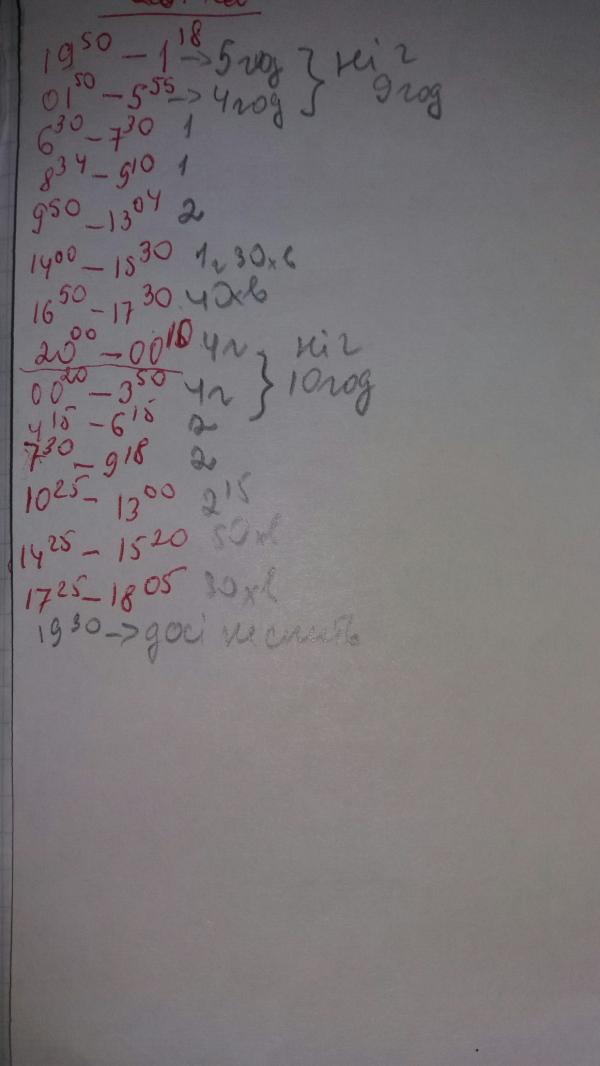 19⁵⁰ – 1¹⁸ → 5 год } ніч
01⁵⁰ – 5⁵⁵ → 4 год } 9 год
6³⁰ – 7³⁰ 1
8³⁴ – 9¹⁰ 1
9⁵⁰ – 13⁰⁴ 2
14⁰⁰ – 15³⁰ 1г 30хв
16⁵⁰ – 17³⁰ 40хв
20⁰⁰ – 00¹⁰ 4г } ніч
00²⁰ – 3⁵⁰ 4г } 10 год
4¹⁵ – 6¹⁵ 2
7³⁰ – 9¹⁸ 2
10²⁵ – 13⁰⁰ 2¹⁵
14²⁵ – 15²⁰ 50хв
17²⁵ – 18⁰⁵ 30хв
19³⁰ → досі не спить